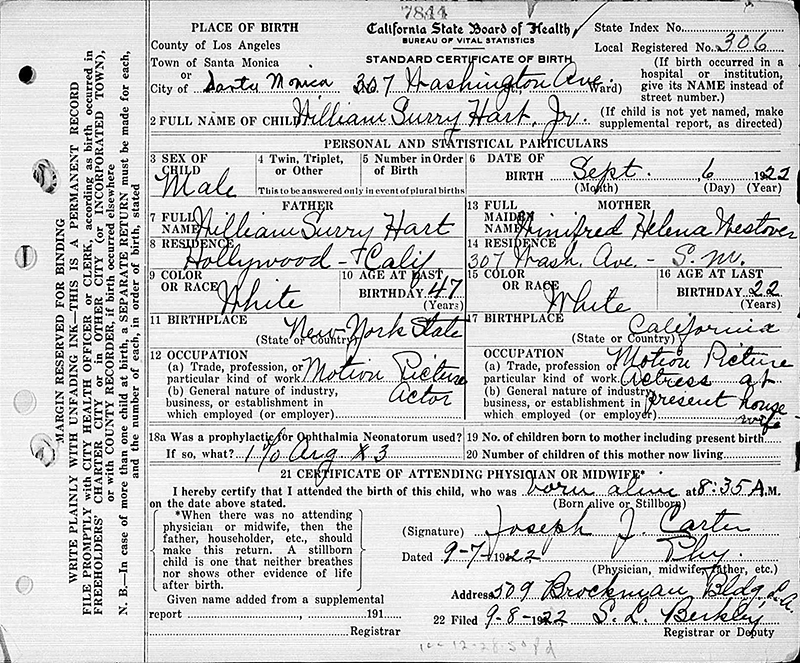 7844
PLACE OF BIRTH
County of Los Angeles
Town of Santa Monica
or
City of Santa Monica 307 Washington Ave. Ward)
California State Board of Health
BUREAU OF VITAL STATISTICS
STANDARD CERTIFICATE OF BIRTH
State Index No.
Local Registered No. 306
(If birth occurred in a
hospital or institution,
give its NAME instead of
street number.)
2 FULL NAME OF CHILD William Surry Hart, Jr.
(If child is not yet named, make
supplemental report, as directed)
PERSONAL AND STATISTICAL PARTICULARS
3 SEX OF
CHILD
Male
4 Twin, Triplet,
or Other
5 Number in Order
of Birth
This to be answered only in event of plural births
6 DATE OF
BIRTH Sept. 6 1922
(Month) (Day) (Year)
FATHER
7 FULL
NAME William Surry Hart
8 RESIDENCE
Hollywood - Calif
9 COLOR
OR RACE
White
10 AGE AT LAST
BIRTHDAY 47
(Years)
11 BIRTHPLACE
New-York State
(State or Country)
12 OCCUPATION
(a) Trade, profession, or
particular kind of work Motion Picture
(b) General nature of industry, Actor
business, or establishment in
which employed (or employer)
MOTHER
13 FULL
MAIDEN
NAME Winifred Helena Westover
14 RESIDENCE
307 Wash. Ave. - S.M.
15 COLOR
OR RACE
White
16 AGE AT LAST
BIRTHDAY 22
(Years)
17 BIRTHPLACE
California
(State or Country)
OCCUPATION
(a) Trade, profession or Motion Picture
particular kind of work. Actress at
(b) General nature of industry,
business, or establishment in present house
which employed (or employer) wife
18a Was a prophylactic for Ophthalmia Neonatorum used?
If so, what? 1% Arg. X 3
19 No. of children born to mother including present birth
20 Number of children of this mother now living.
21 CERTIFICATE OF ATTENDING PHYSICIAN OR MIDWIFE*
I hereby certify that I attended the birth of this child, who was born alive at 8:35 A.M.
on the date above stated. (Born alive or Stillborn)
*When there was no attending
physician or midwife, then the
father, householder, etc., should
make this return. A stillborn
child is one that neither breathes
nor shows other evidence of life
after birth.
Given name added from a supplemental
report , 191
Registrar
(Signature) Joseph J. Carter
Dated 9-7-1922 Phy.
(Physician, midwife, father, etc.)
Address 509 Brockman Bldg L.A.
22 Filed 9-8-1922 S. L. Berkley
Registrar or Deputy
MARGIN RESERVED FOR BINDING
WRITE PLAINLY WITH UNFADING INK—THIS IS A PERMANENT RECORD
FILE PROMPTLY with CITY HEALTH OFFICER or CLERK, according as birth occurred in
FREEHOLDERS' CHARTER CITY or in OTHER CITY (or INCORPORATED TOWN),
or with COUNTY RECORDER, if birth occurred elsewhere
N. B.—In case of more than one child at birth, a SEPARATE RETURN must be made for each,
and the number of each, in order of birth, stated